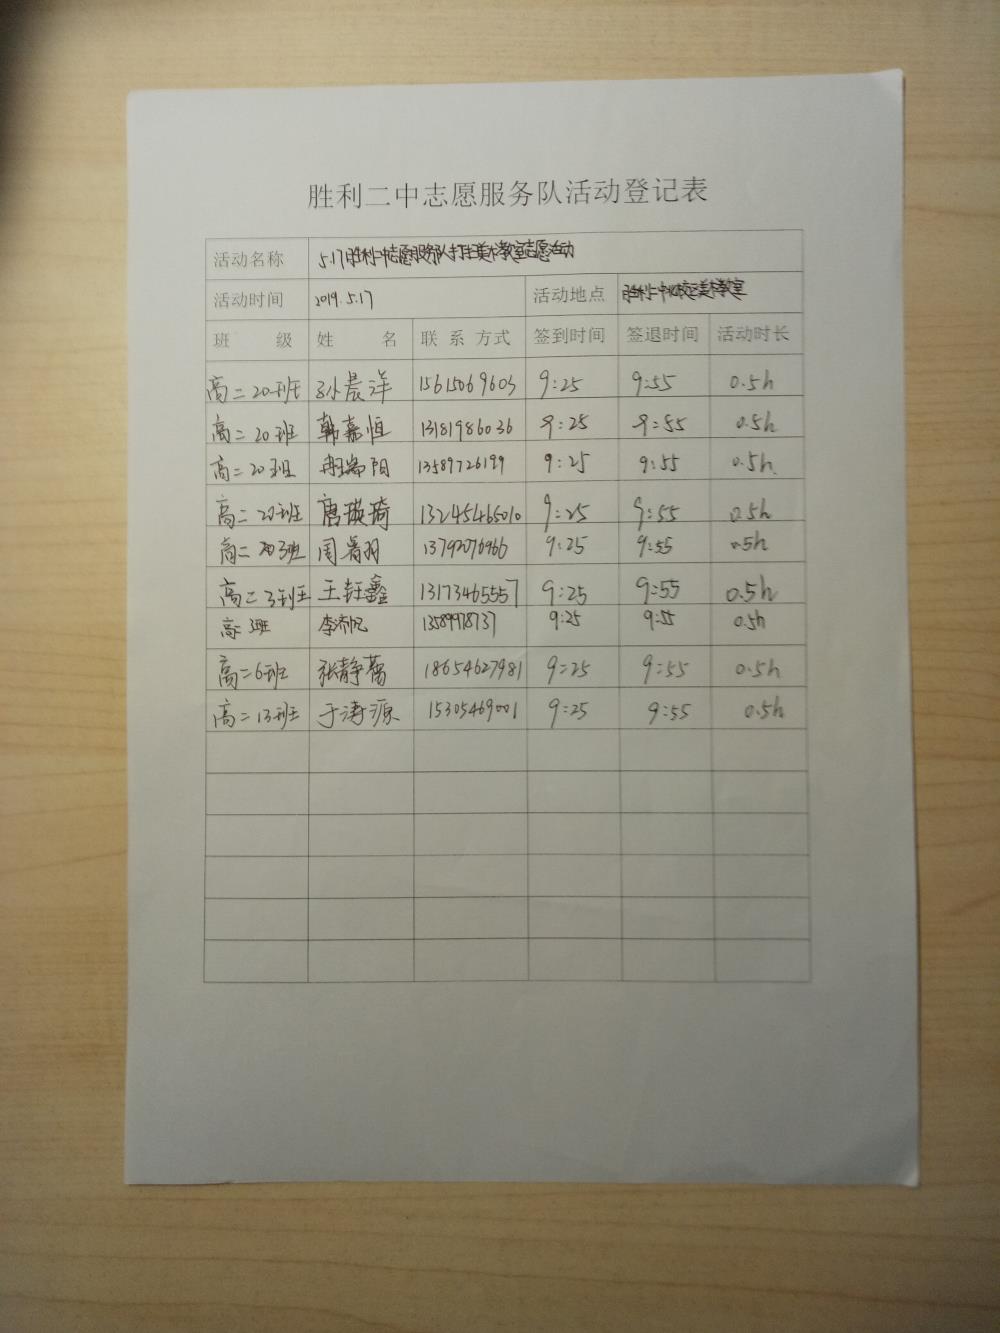 胜利二中志愿服务队活动登记表
活动名称 5.17胜利二中志愿服务队打扫美术教室志愿活动
活动时间 2019.5.17 活动地点 胜利二中北校区美术教室
班 级 姓 名 联 系 方式 签到时间 签退时间 活动时长
高二20班 孙晨洋 15615069603 9:25 9:55 0.5h
高二20班 韩嘉恒 13181986036 9:25 9:55 0.5h
高二20班 冉瑞阳 13589726199 9:25 9:55 0.5h
高二20班 唐琦 13245465010 9:25 9:55 0.5h
高二3班 周羽 13792076966 9:25 9:55 0.5h
高二3班 王钰鑫 13173465557 9:25 9:55 0.5h
高二3班 李 13589978737 9:25 9:55 0.5h
高二6班 张静 18654627981 9:25 9:55 0.5h
高二13班 于涛源 15305469001 9:25 9:55 0.5h